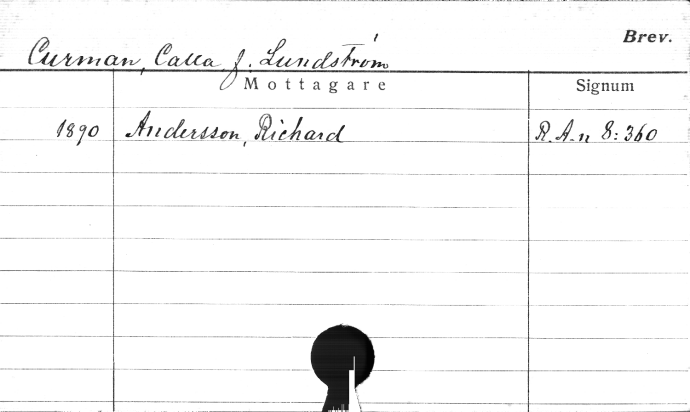 Brev.
Curman, Calla f. Lundström
Mottagare Signum
1890 Andersson, Richard R.A.n 8:360